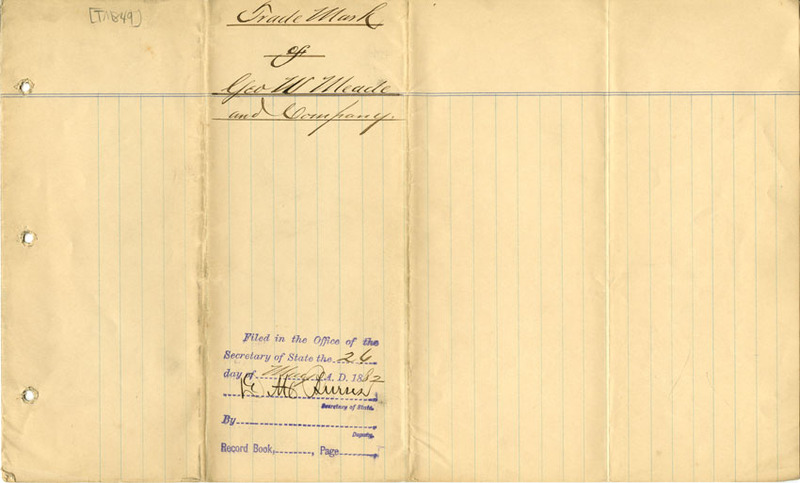 [T1849]
Trade Mark
of
Geo W Meade
and Company.
Filed in the Office of the
Secretary of State the 26
day of May A. D. 1882
Burns
Secretary of State.
By
Deputy.
Record Book, , Page